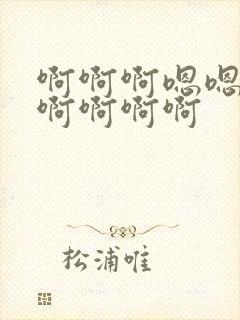 啊啊啊嗯嗯
啊啊啊啊
松浦唯